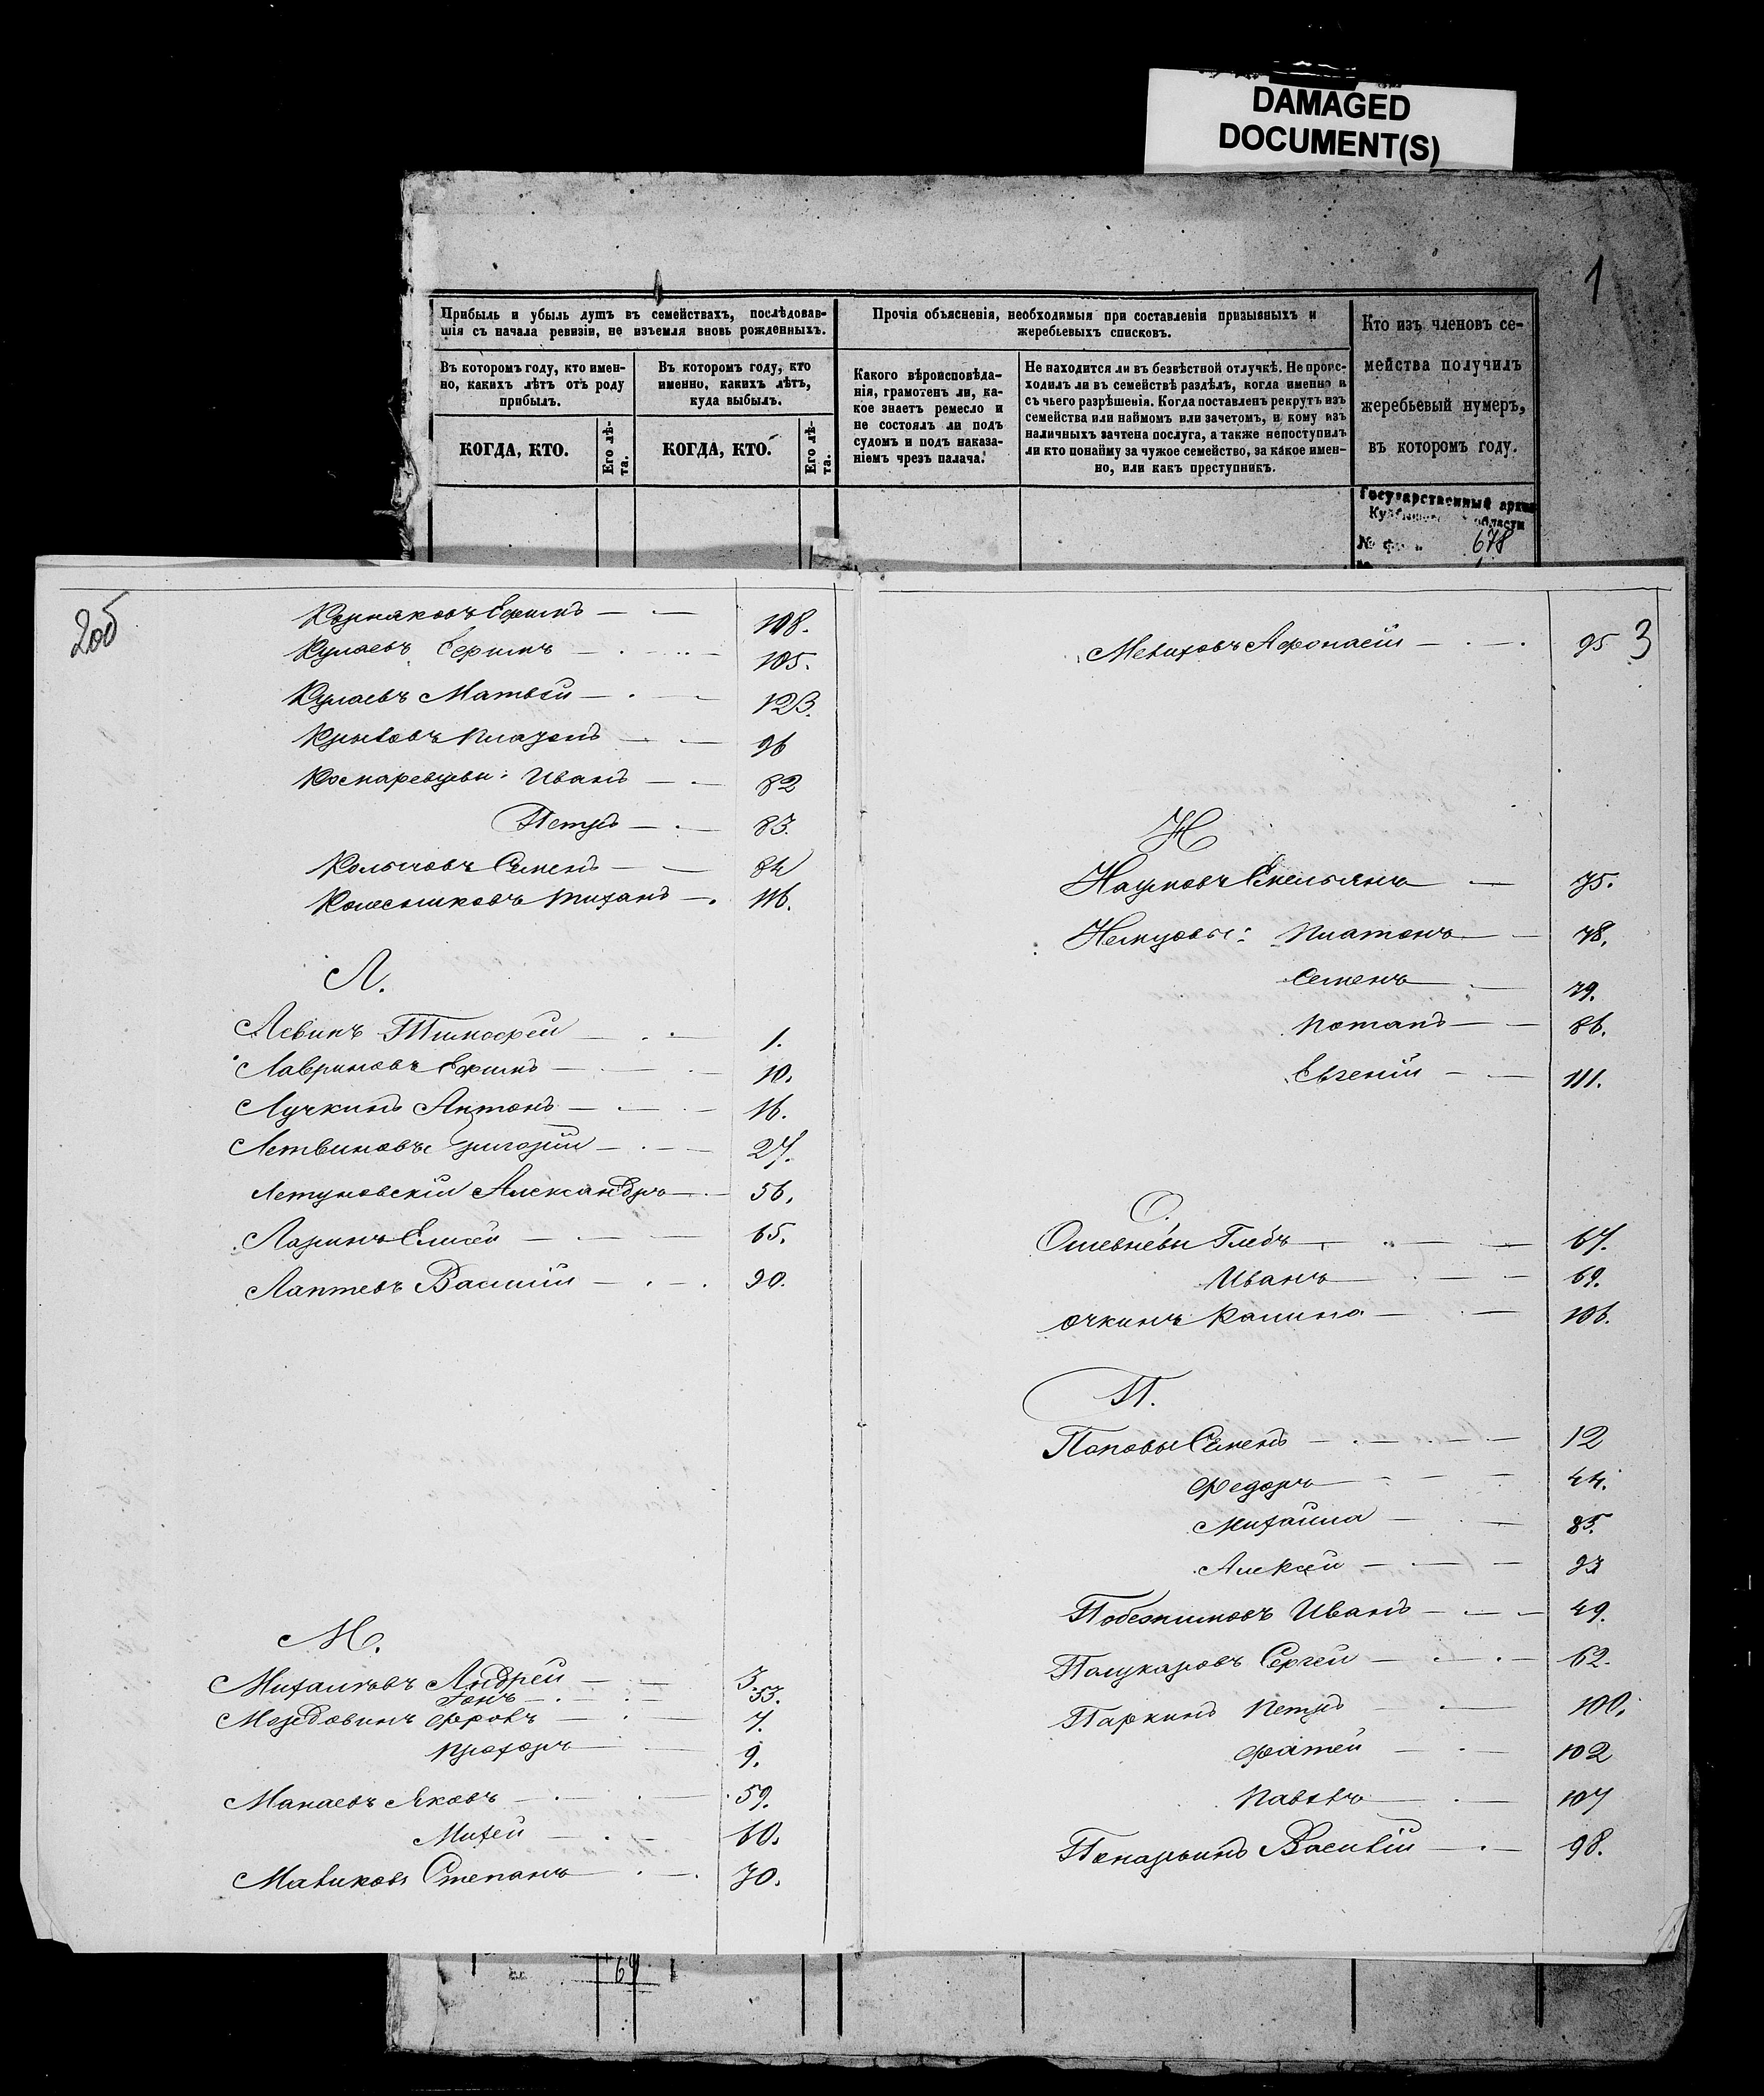 DAMAGED
DOCUMENT(S)
1
Прибыль и убыль душъ въ семействахъ, послѣдовав-
шія съ начала ревизіи, не изъемля вновь рожденныхъ.
Прочія объясненія, необходимыя при составленіи призывныхъ и
жеребьевыхъ списковъ.
Кто изъ членовъ се-
мейства получилъ
жеребьевый нумеръ,
въ которомъ году.
Въ которомъ году, кто имен-
но, какихъ лѣтъ отъ роду
прибылъ.
Въ которомъ году, кто
именно, какихъ лѣтъ,
куда выбылъ.
Какого вѣроисповѣда-
нія, грамотенъ ли, ка-
кое знаетъ ремесло и
не состоялъ ли подъ
судомъ и подъ наказа-
ніемъ чрезъ палача.
Не находится ли въ безвѣстной отлучкѣ. Не проис-
ходилъ ли въ семействѣ раздѣлъ, когда именно и
съ чьего разрѣшенія. Когда поставленъ рекрутъ изъ
семейства или наймомъ или зачетомъ, и кому изъ
наличныхъ зачтена послуга, а также непоступилъ
ли кто понайму за чужое семейство, за какое имен-
но, или какъ преступникъ.
КОГДА, КТО.
Его лѣ-
та.
КОГДА, КТО.
Его лѣ-
та.
Государственный архив
области
№ 678
205
Ефимъ 108.
Кулаевъ 105.
Кулаевъ Матвѣй 123.
96
Иванъ 82
Петръ 83.
Семенъ 84
Колесниковъ 116.
Л.
Левинъ Тимофей 1.
Лавриновъ Ефимъ 10.
Лучкинъ Антонъ 16.
Летвиновъ Григорій 27.
Летуновскій Александръ 56.
Ларинъ Елисей 65.
Лаптевъ Василій 90.
М.
Михайловъ Андрей 3.
53.
Фролъ 7.
Прохоръ 9.
Манаевъ Яковъ 59.
Михей 60.
Степанъ 70.
3
Афонасій 95
Н
Наумовъ Емельянъ 75.
Немцовы: Платонъ 78.
Семенъ 79.
Потапъ 86.
Евгеній 111.
О.
Глебъ 67.
Иванъ 69.
Очкинъ Калина 106.
П.
Поповы Семенъ 12
Федоръ 44.
Михайла 85.
Алексей 93
Иванъ 49.
Полукаровъ Сергей 62.
Паркинъ Петръ 100.
Фатей 102
Павелъ 107
Василій 98.
64